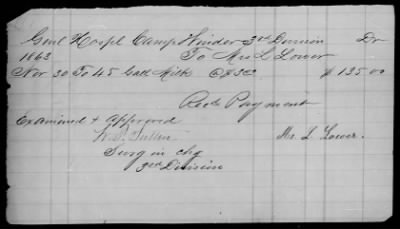 Genl Hospl Camp Winder 3rd Division Dr
1863 To Mrs L Lower
Nov 30 To 45 Galls Milk @ $3 $135.00
Recd Payment
Examined & approved
Mrs L Lower.
Surg in chg
3rd Division